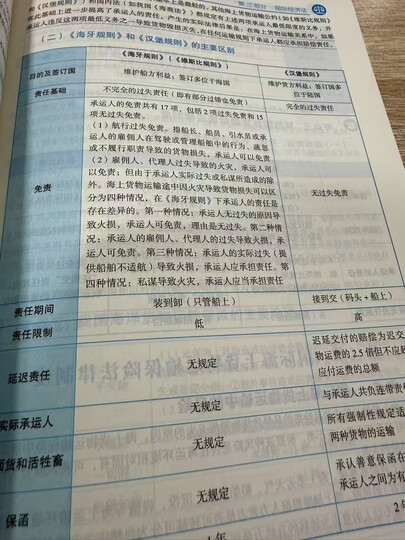 第三部分 国际经济法
《汉堡规则》和国内法(如我国《海商法》)
在此基础上进一步提高了承运人的责任。产生的实际法律后果是:在海上货物运输关系中,如果
承运人违反这两项最低义务之一导致货物毁损灭失,在任何运输规则下承运人都应承担赔偿责任。
(二)《海牙规则》和《汉堡规则》的主要区别
《海牙规则》(《维斯比规则》)
《汉堡规则》
目的及签订国
维护船方利益;签订多位于海国
维护货方利益;签订国多
位于陆国
责任基础
不完全的过失责任(即有部分过错也免责)
完全的过失责任
免责
承运人的免责共有 17 项,包括 2 项过失免责和 15
项无过失免责。
(1)航行过失免责。指船长、船员、引水员或承
运人的雇佣人在驾驶或管理船舶中的行为、疏忽
或不履行职责导致的货物损失,承运人可以免责
(2)雇佣人、代理人过失导致的火灾,承运人可
以免责;但由于承运人实际过失或私谋所造成的除
外。海上货物运输途中因火灾导致货物损失可以区
分为四种情况,在《海牙规则》下承运人的责任是
存在差异的。第一种情况:承运人无过失的原因导
致火损,承运人可免责,理由是无过失。第二种情
况:承运人的雇佣人、代理人的过失导致火损,承
运人可免责。第三种情况:承运人的实际过失(提
供船舶不适航)导致火损,承运人应承担责任。第
四种情况:私谋导致火灾,承运人应当承担责任
无过失免责
责任期间
装到卸(只管船上)
接到交(码头+船上)
责任限制
低
高
延迟责任
无规定
迟延交付的赔偿为迟交
物运费的 2.5 倍但不应超
应付运费的总额
实际承运人
无规定
与承运人共负连带责任
面货和活牲畜
无规定
所有强制性规定适
两种货物的运输
保函
无规定
承认善意保函在
承运人之间为有
1 年
2 年